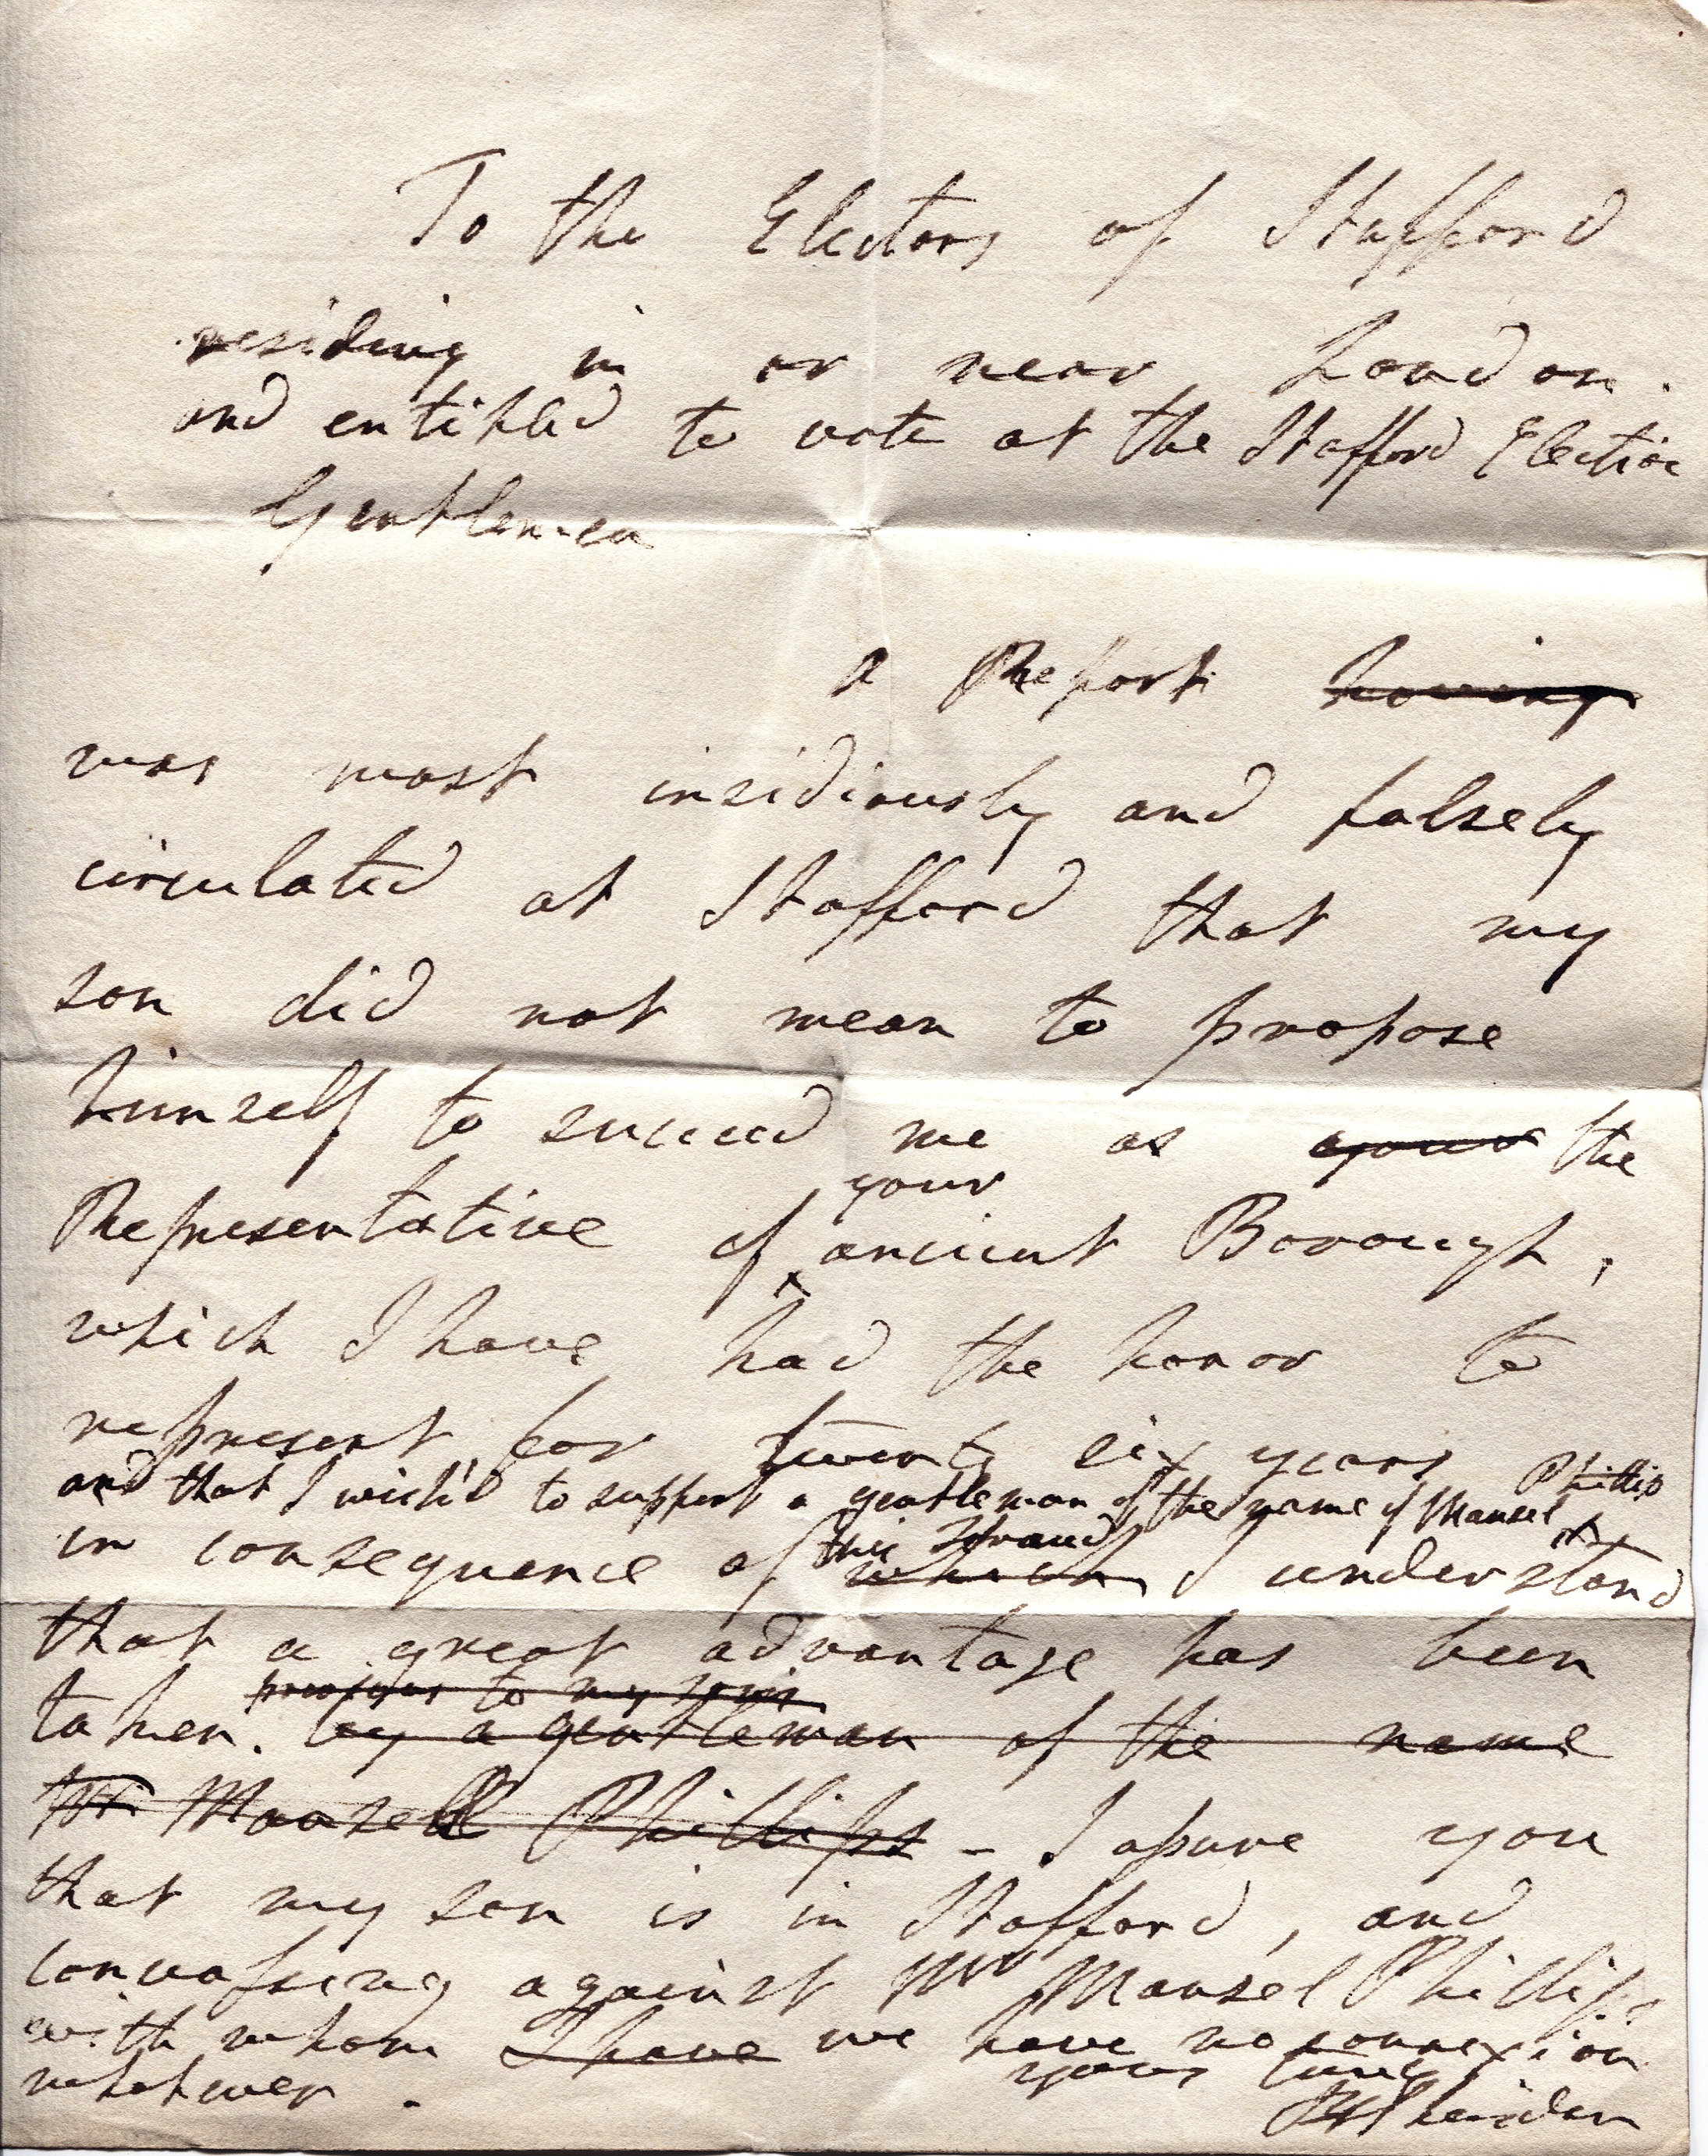 To the Electors of Stafford
residing in or near London.
and entitled to vote at the Stafford Election
Gentlemen
A Report having
was most insidiously and falsely
circulated at Stafford that my
son did not mean to propose
himself to succeed me as your the
your
Representative of ancient Borough,
which I have had the honor to
represent for twenty six years
and that I wish'd to support a gentleman of the name of Mansel Phillips
this
in consequence of which I understand
that a great advantage has been
previous to my son's
taken. by a gentleman of the name
Mansell Phillips - I assure you
that my son is in Stafford, and
canvassing against Mr Mansel Phillips
with whom I have we have no connexion
whatever.
yours truly
RBSheridan